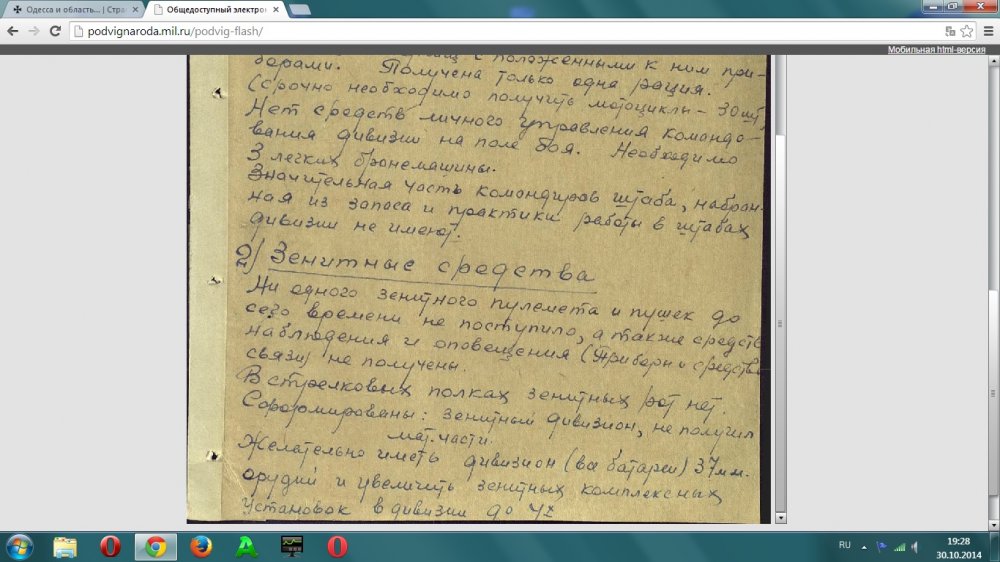 Одесса и область... | Стра
Общедоступный электрон
podvignaroda.mil.ru/podvig-flash/
Мобильная html-версия
с положенными к ним при-
борами. Получена только одна рация.
(срочно необходимо получить мотоциклы - 30 шт
Нет средств личного управления командо-
вания дивизии на поле боя. Необходимо
3 легких бронемашины.
Значительная часть командиров штаба, набран-
ная из запаса и практики работы в штабах
дивизии не имеют.
2) Зенитные средства
Ни одного зенитного пулемета и пушек до
сего времени не поступило, а также средств
наблюдения и оповещения (Приборы и средства
связи) не получены.
В стрелковых полках зенитных рот нет.
Сформированы: зенитный дивизион, не получил
мат.части.
Желательно иметь дивизион (все батареи) 37мм.
орудий и увеличить зенитных комплексных
установок в дивизии до 4х
RU
19:28
30.10.2014